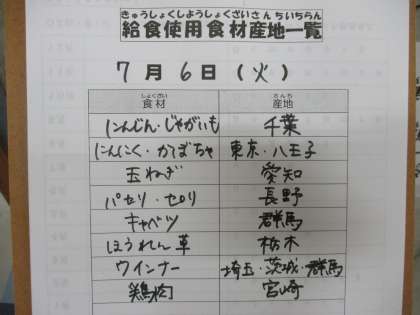 きゅうしょくしようしょくざいさんちいちらん
給食使用食材産地一覧
7月6日(火)
しょくざい さんち
食材 産地
にんじん・じゃがいも 千葉
にんにく・かぼちゃ 東京・八王子
玉ねぎ 愛知
パセリ・セロリ 長野
キャベツ 群馬
ほうれん草 栃木
ウインナー 埼玉・茨城・群馬
鶏肉 宮崎